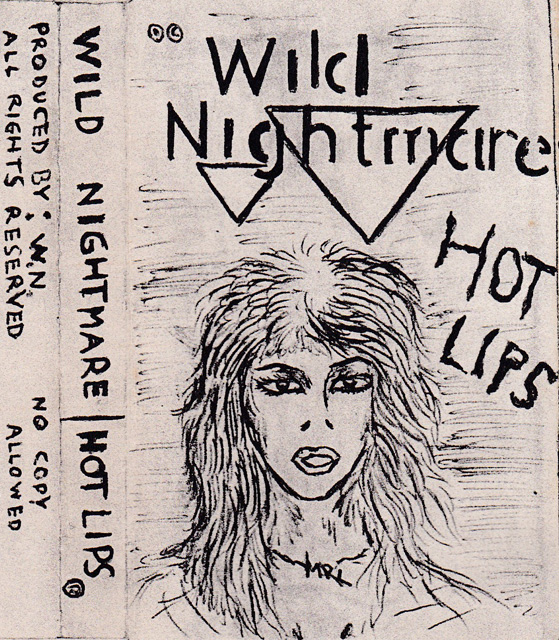 PRODUCED BY: W.N.
ALL RIGHTS RESERVED
NO COPY
ALLOWED
WILD NIGHTMARE | HOT LIPS
Wild
Nightmare
HOT
LIPS